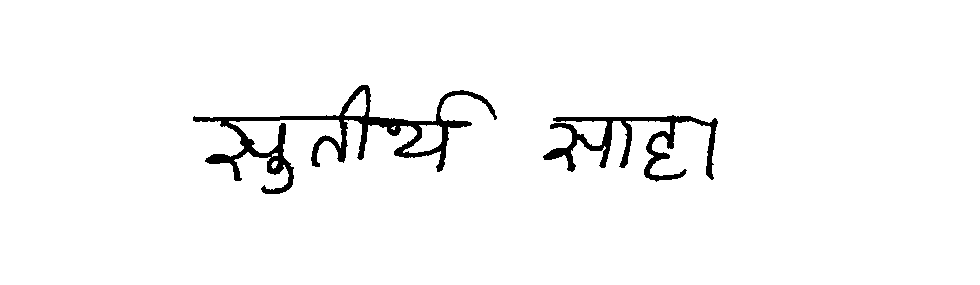 सुतीर्थ साहा